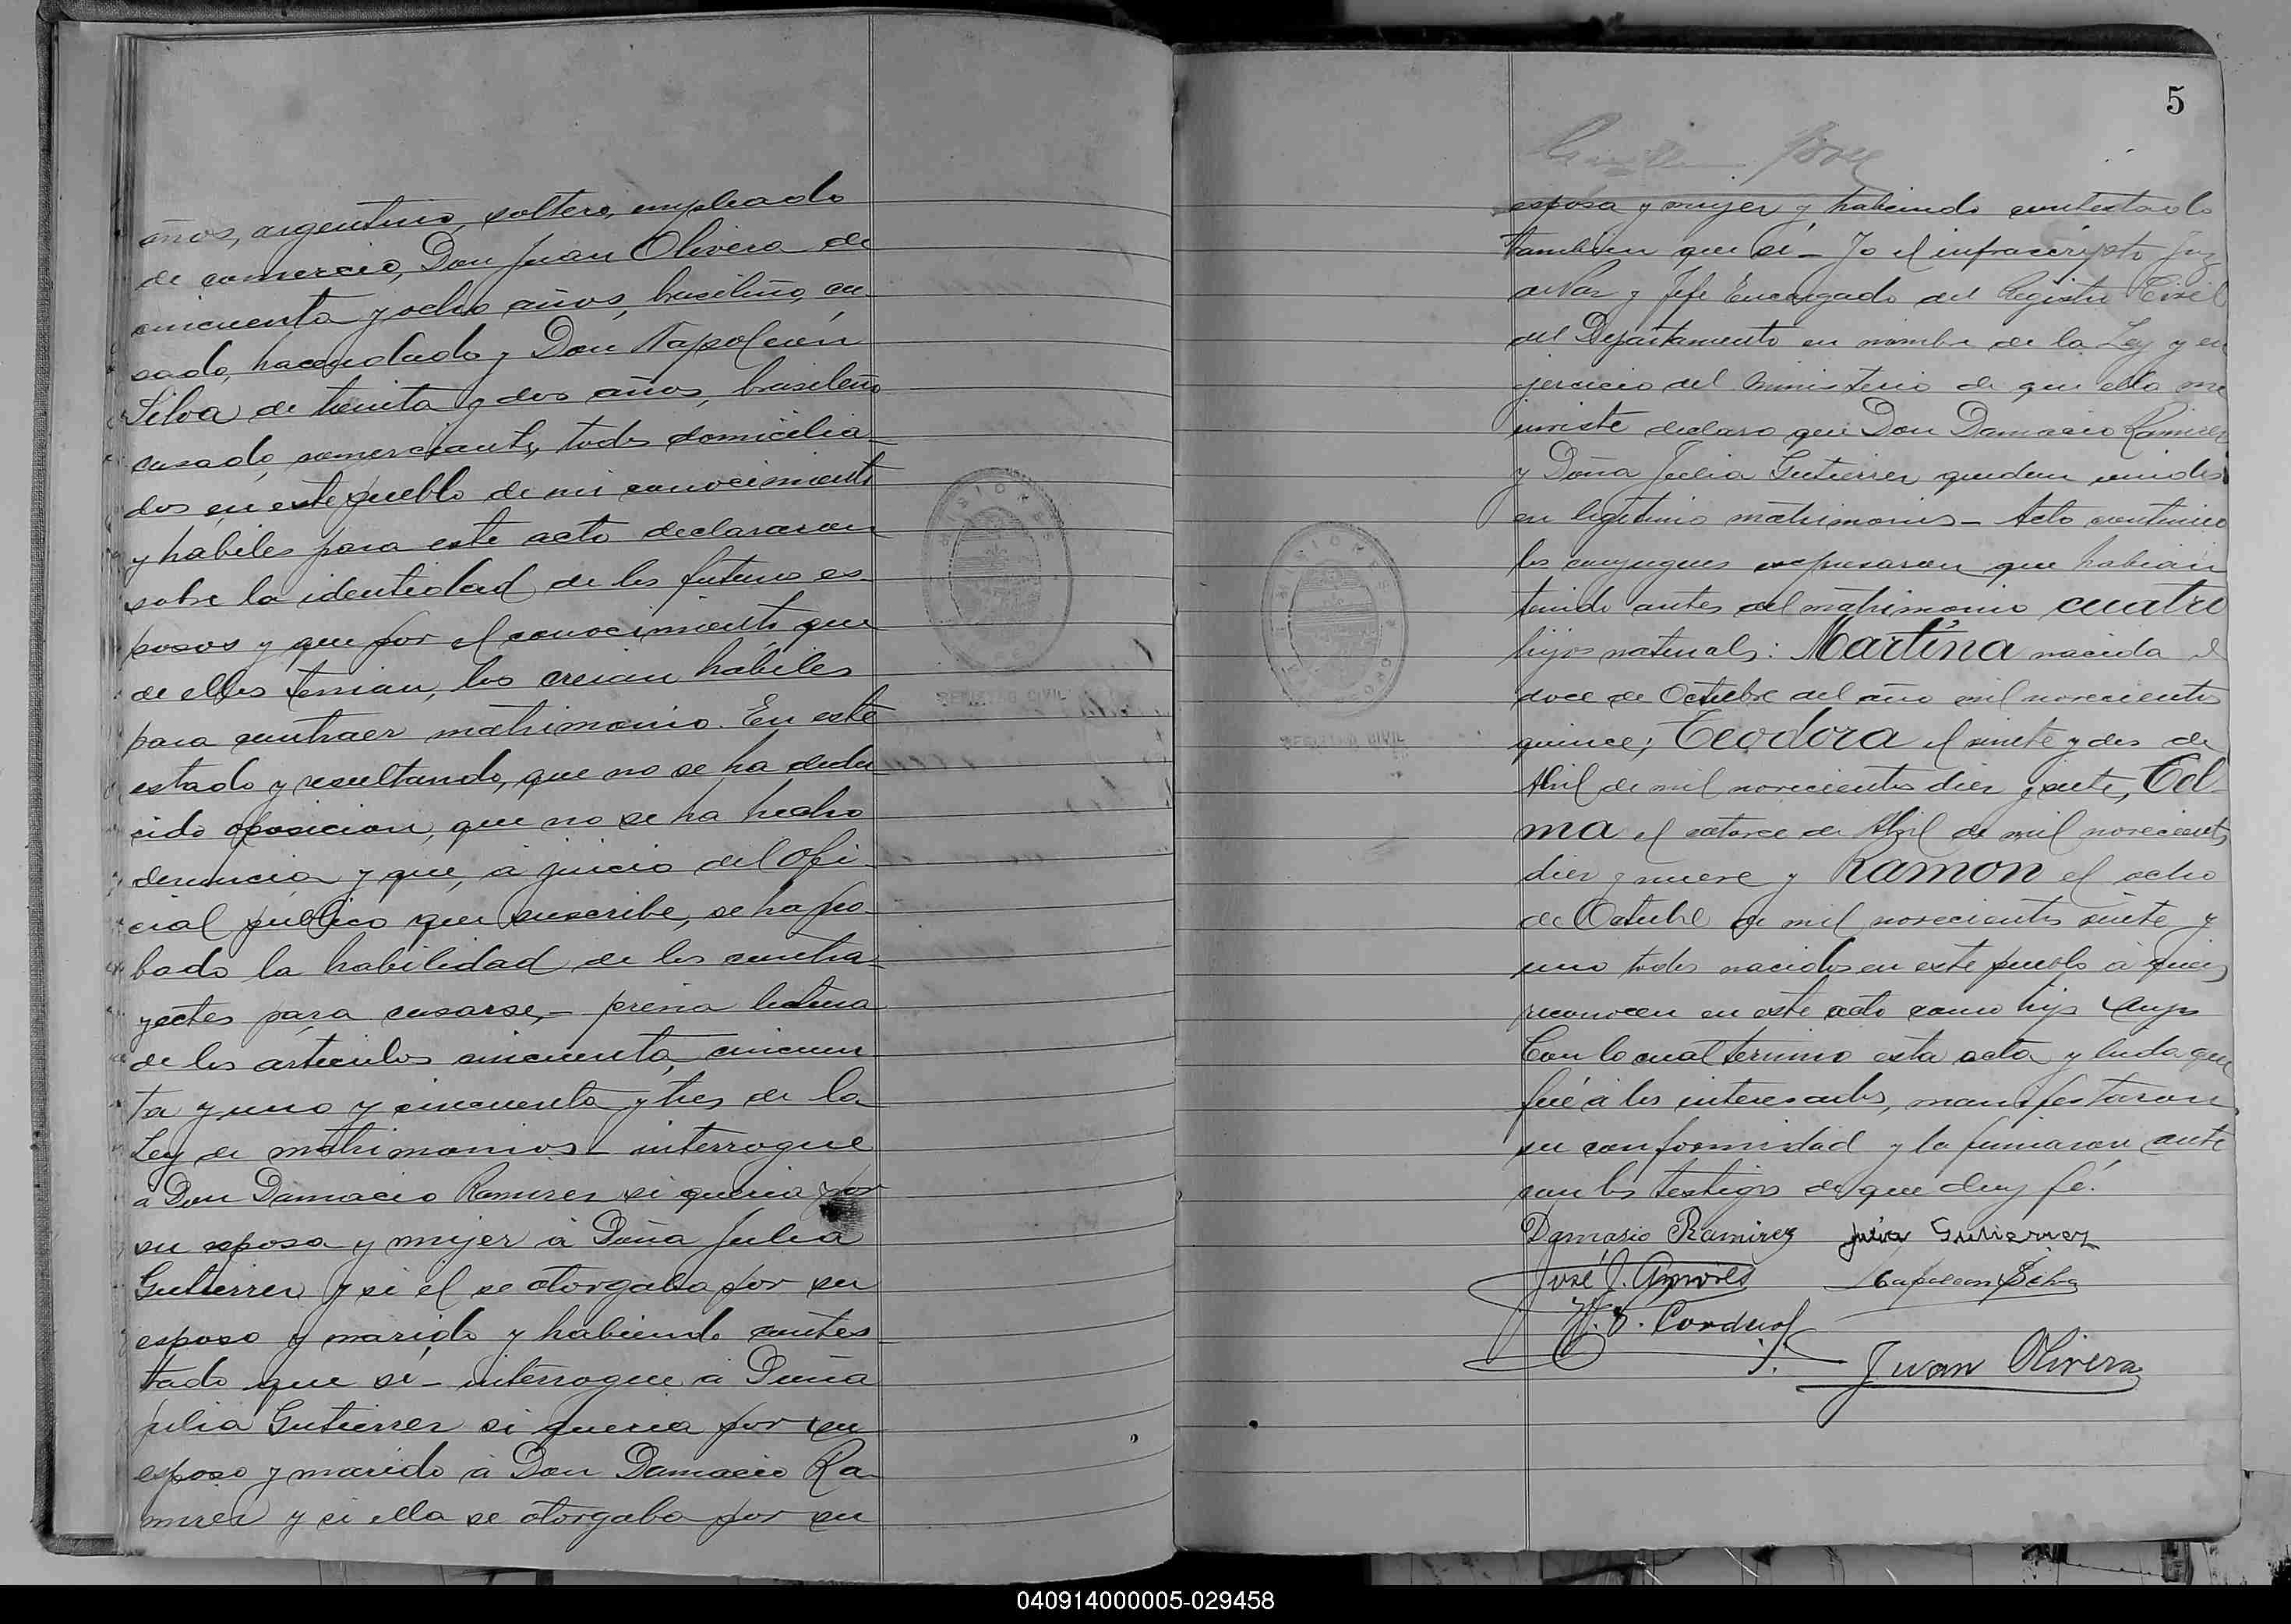 años, argentino, soltero, empleado
de comercio, Don Juan Olivera de
cincuenta y ocho años, brasileño, ca-
sado, hacendado y Don Napoleón
Silva de treinta y dos años, brasileño
casado, comerciante, todos domicilia-
dos en este pueblo de mi conocimiento
y habiles para este acto declararon
sobre la identidad de los futuros es-
posos y que por el conocimiento que
de ellos tenian, los creian hábiles
para contraer matrimonio. En este
estado y resultando, que no se ha dedu-
cido oposicion, que no se ha hecho
denuncia y que, á juicio del Ofi-
cial público que suscribe, se ha pro-
bado la habilidad de los contra-
yectes para casarse,- previa lectura
de los articulos cincuenta, cincuen-
ta y uno y cincuenta y tres de la
Ley de matrimonios - interrogue
a Don Damacio Ramirez si queria por
su esposa y mujer á Doña Julia
Gutierrez y si el se otorgaba por su
esposo y marido y habiendo contes-
tado que sí - interrogue á Doña
Julia Gutierrez si queria por su
esposo y marido á Don Damacio Ra-
mirez y si ella se otorgaba por su
MISIONES
REGISTRO CIVIL
5
esposa y mujer y habiendo contestado
tambien que si - Yo el infrascripto Juez
de Paz y Jefe Encargado del Registro Civil
del Departamento en nombre de la Ley y en
ejercicio del ministerio de que ella me
inviste declaro que Don Damacio Ramirez
y Doña Julia Gutierrez quedan unidos
en legitimo matrimonio - Acto continuo
los conyugues expresaron que habian
tenido antes del matrimonio cuatro
hijos naturales: Martina nacida el
doce de Octubre del año mil novecientos
quince; Teodora el veinte y dos de
Abril de mil novecientos diez y siete, Tel-
ma el catorce de Abril de mil novecientos
diez y nueve y Ramon el ocho
de Octubre de mil novecientos veinte y
uno todos nacidos en este pueblo á quienes
reconocen en este acto como hijos suyos
Con lo cual termino esta acta y leida que
fué á los interesados, manifestaron
su conformidad y la firmaron ante
con los testigos de que doy fé.
Damasio Ramirez Julia Gutierrez
José J. Napoleon Silva
Juan Olivera
MISIONES
REGISTRO CIVIL
040914000005-029458